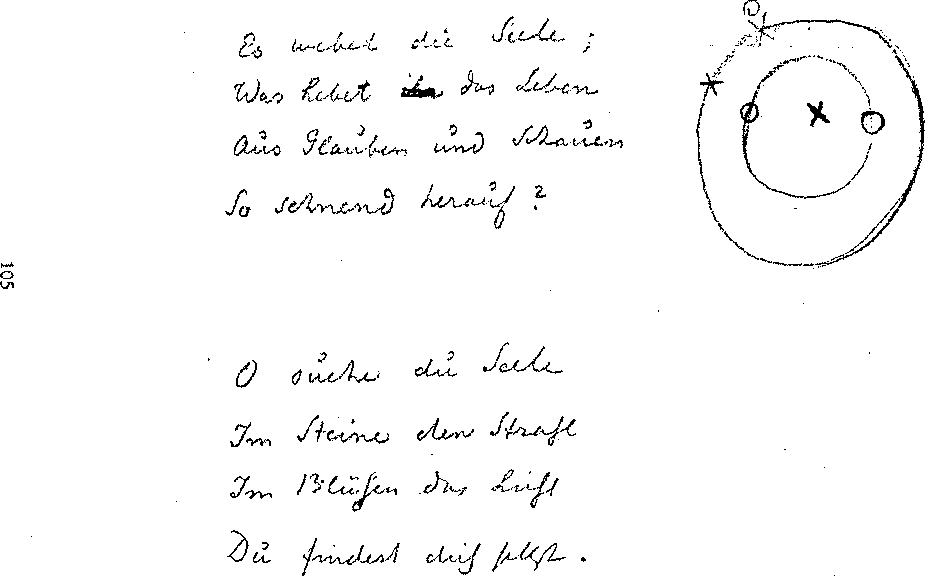 Es webet die Seele;
Was hebet das Leben
Aus Glauben und Schauen
So sehnend herauf?
105
O suche du Seele
Im Steine den Strahl
Im Blühen das Licht
Du findest dich selbst.